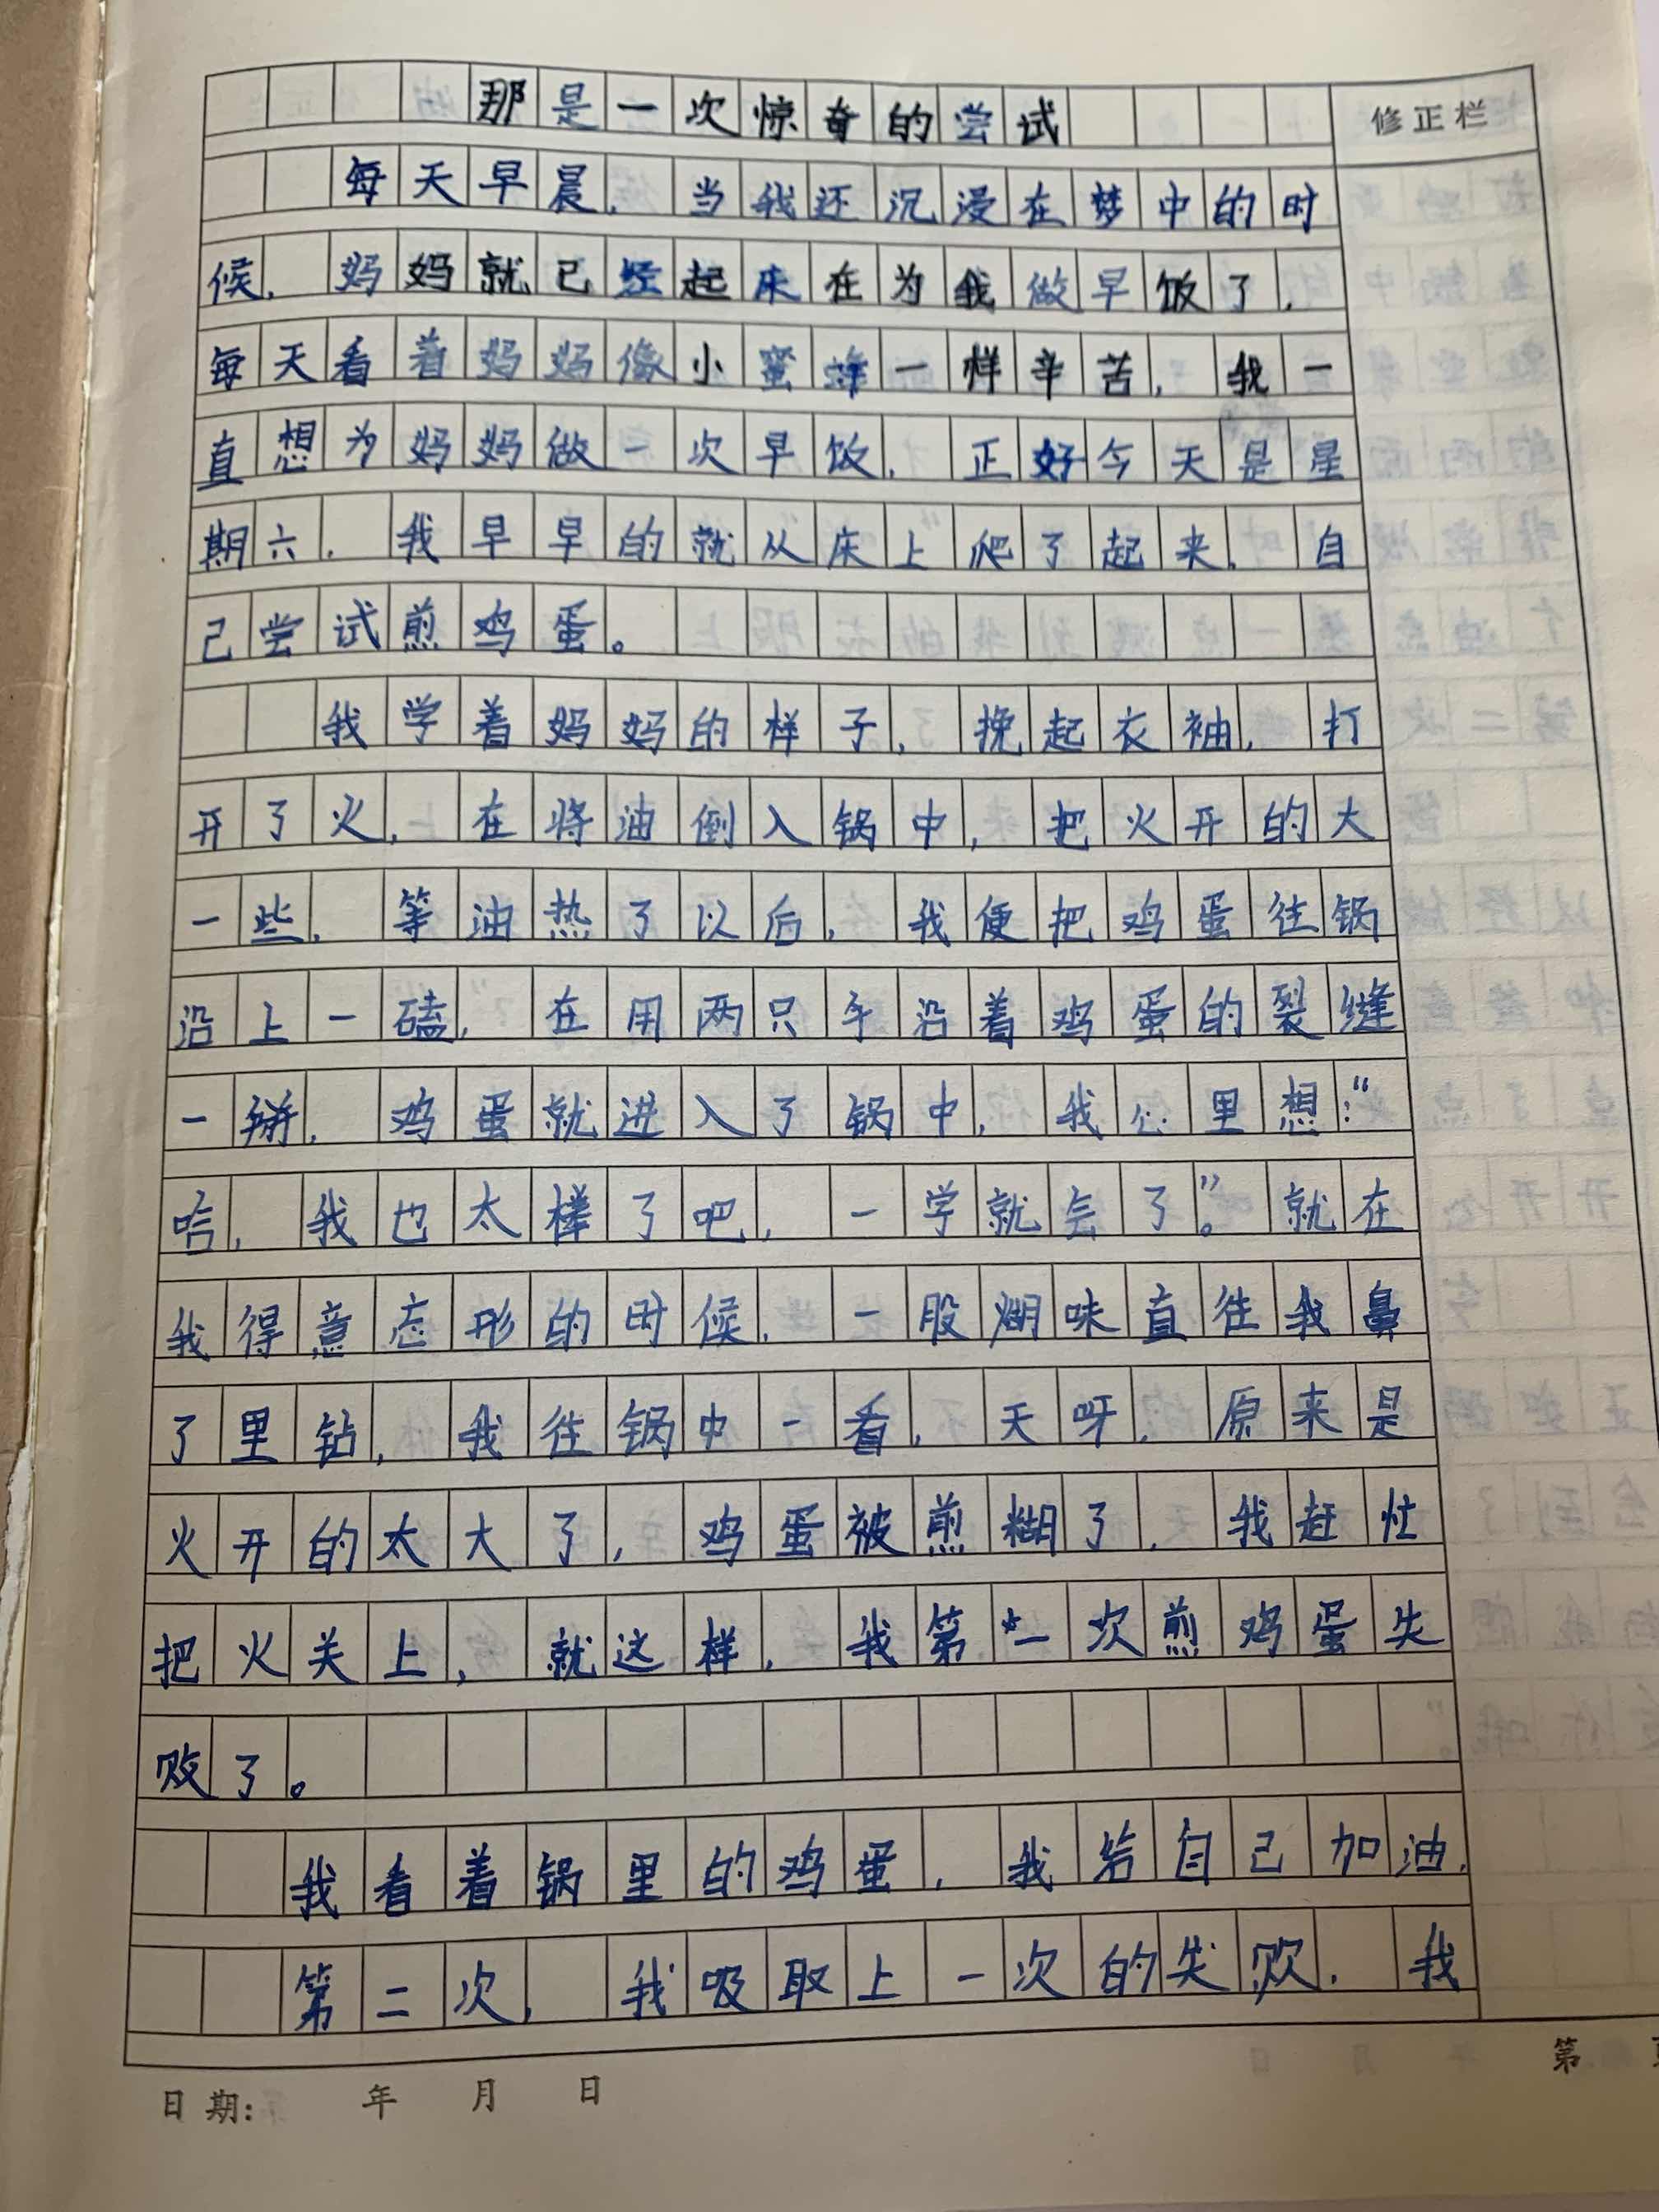 那是一次惊奇的尝试
修正栏
每天早晨，当我还沉浸在梦中的时
候，妈妈就已经起床在为我做早饭了，
每天看着妈妈像小蜜蜂一样辛苦，我一
直想为妈妈做一次早饭，正好今天是星
期六，我早早的就从床上爬了起来，自
己尝试煎鸡蛋。
我学着妈妈的样子，挽起衣袖，打
开了火，在将油倒入锅中，把火开的大
一些，等油热了以后，我便把鸡蛋往锅
沿上一磕，在用两只手沿着鸡蛋的裂缝
一掰，鸡蛋就进入了锅中，我心里想：“
哈，我也太棒了吧，一学就会了”。就在
我得意忘形的时候，一股煳味直往我鼻
了里钻，我往锅中一看，天呀，原来是
火开的太大了，鸡蛋被煎糊了，我赶忙
把火关上，就这样，我第一次煎鸡蛋失
败了。
我看着锅里的鸡蛋，我给自己加油，
第二次，我吸取上一次的失败，我
日期： 年 月 日
第